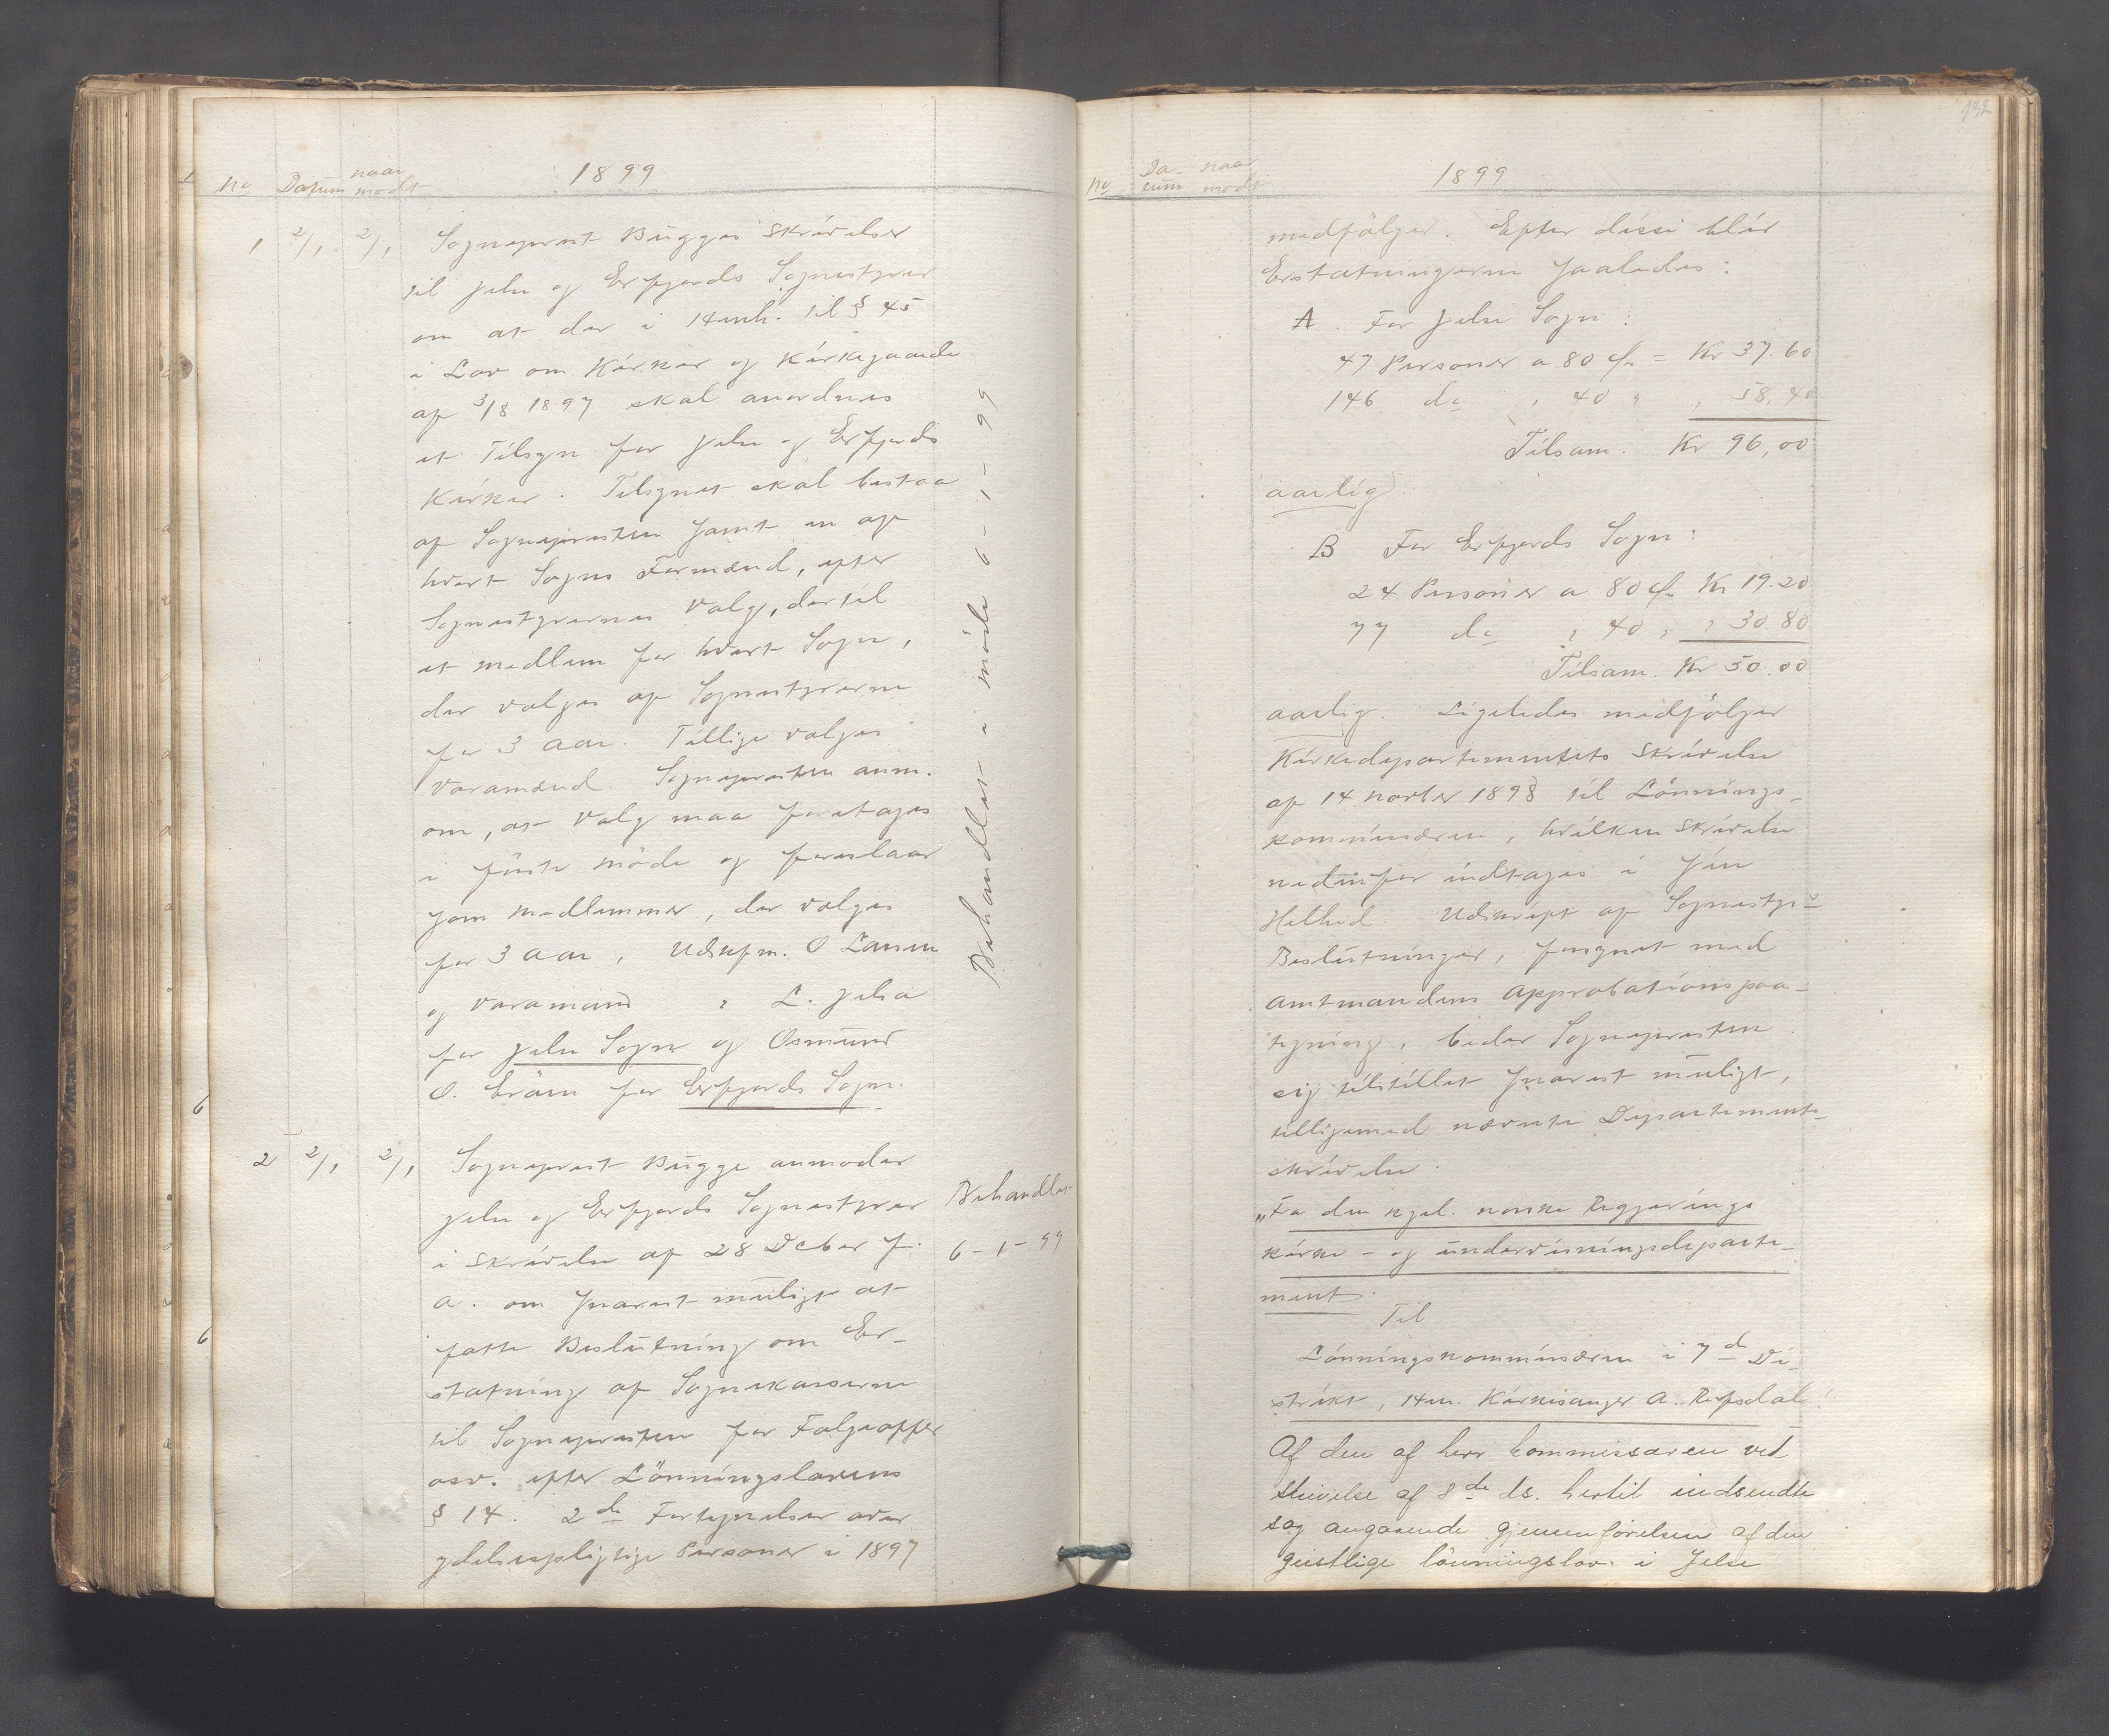 No Datum naar modt 1899
1 2/1 2/1 Sogneprest Bugges Skrivelser
til Jelse og Erfjords Sognestyrer
om at der i Henh. til § 45
i Lov om Kirker og Kirkegaarde
af 3/8 1897 skal anordnes
et Tilsyn for Jelse og Erfjords
Kirker. Tilsynet skal bestaa
af Sognepresten samt en af
hvert Sogns Formænd, efter
Sognestyrernes Valg, dertil
et medlem for hvert Sogn,
der vælges af Sognestyrerne
for 3 Aar. Tillige vælges
Varamænd. Sognepresten anm.
om, at Valg maa foretages
i förste Möde og foreslaar
som Medlemmer, der vælges
for 3 Aar, Udskfm. O Larsen
og Varamand " L. Jelsa
for Jelse Sogn og Osmund
O. for Erfjords Sogn.
Behandlet i möde 6-1-99
2 2/1 2/1 Sogneprest Bugge anmoder
Jelse og Erfjords Sognestyrer
i Skrivelse af 28 Dcber f.
A. om snarest muligt at
fatte Beslutning om Er-
statning af Sognekasserne
til Sognepresten for
osv. efter Lönningslovens
§ 14. 2de Fortegnelser over
ydelsespligtige Personer i 1897
Behandlet
6-1-99
132
No Da- tum naar modt 1899
medfölger. Efter disse blir
Erstatningerne saaledes:
A. For Jelse Sogn:
47 Personer a 80 Öre = Kr 37.60
146 do " 40 " " 58,40
Tilsam. Kr 96,00
aarlig.
B For Erfjords Sogn:
24 Personer a 80 Öre Kr 19.20
77 do " 40 " " 30.80
Tilsam. Kr 50.00
aarlig. Ligeledes medfölger
Kirkedepartementets Skrivelse
af 14 Novber 1898 til Lönnings-
kommissæren, hvilken Skrivelse
nedenfor indtages i sin
Helhed. Udskrift af Sognestyr-
Beslutninger, forsynet med
Amtmandens Approbationspaa-
tegning, beder Sognepresten
sig tilstillet snarest muligt,
tilligemed nævnte Departements-
skrivelse.
„Fra den kgel. norske Regjerings
kirke- og undervisningsdeparte-
ment.
Til
Lönningskommissæren i 7de Di-
strikt, Hr. Kirkesanger A. Refsdal.
Af den af herr kommissæren ved
skrivelse af 8de ds. hertil indsendte
sag angaaende gjennemförelsen af den
geistlige lönningslov i Jelse